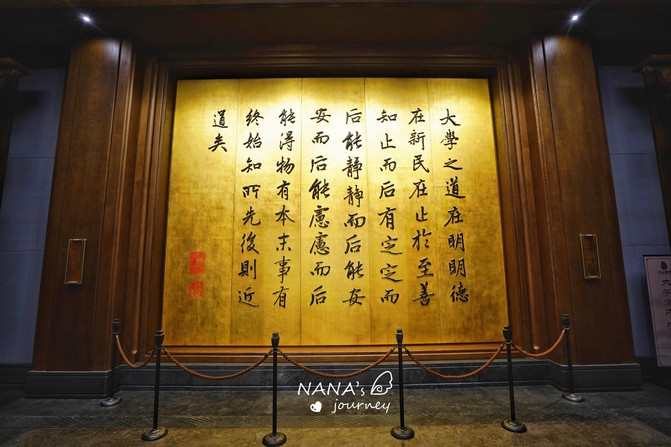 大學之道在明明德
在新民在止於至善
知止而后有定定而
后能静静而后能安
安而后能慮慮而后
能得物有本末事有
終始知所先後則近
道矣
NANA's
journey